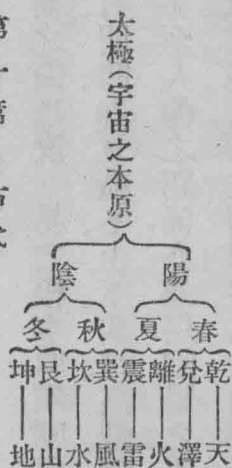 太極（宇宙之本原）
陽 陰
春 夏 秋 冬
乾 兌 離 震 巽 坎 艮 坤
天 澤 火 雷 風 水 山 地